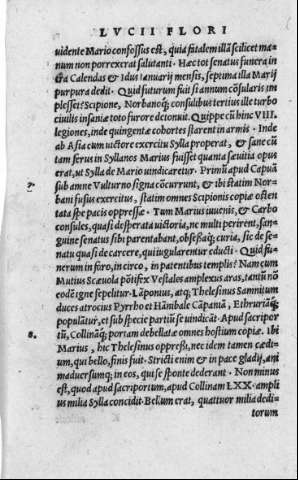 LVCII FLORI
uidente Mario confossus est, quia fatalem illã scilicet ma-
num non porrexerat salutanti. Hæc tot senatus funera in
tra Calendas & Idus ianuarij mensis, septima illa Marij
purpura dedit. Quid futurum fuit si annum cõsularis im
plesset? Scipione, Norbanoq; consulibus tertius ille turbo
ciuilis insaniæ toto furore detonuit. Quippe cũ hinc VIII.
legiones, inde quingentæ cohortes starent in armis. Inde
ab Asia cum uictore exercitu Sylla properat, & sane cũ
tam ferus in Syllanos Marius fuisset quanta sæuitia opus
erat, ut Sylla de Mario uindicaretur. Primũ apud Capuã
7. sub amne Vulturno signa cõcurrunt, & ibi statim Nor-
bani fusus exercitus, statim omnes Scipionis copiæ osten
tata spe pacis oppressæ. Tum Marius iuuenis, & Carbo
consules, quasi desperata uictoria, ne multi perirent, san-
guine senatus sibi parentabant, obsessaq; curia, sic de se-
natu quasi de carcere, qui iugularentur educti. Quid fu-
nerum in foro, in circo, in patentibus templis? Nam cum
Mutius Scæuola põtifex Vestales amplexus aras, tantũ nõ
eodẽ igne sepelitur. Lãponius, atq; Thelesinus Samnitium
duces atrocius Pyrrho et Hãnibale Cãpaniã, Ethruriãq;
populãtur, et sub specie partiũ se uindicãt. Apud sacripor
8. tũ, Collinãq; portam debellatæ omnes hostium copiæ. Ibi
Marius, hic Thelesinus oppressi, nec idem tamen cædi-
um, qui bello, finis fuit. Stricti enim & in pace gladij, ani
maduersumq; in eos, qui se sponte dederant. Non minus
est, quod apud sacriportum, apud Collinam LXX. ampli
us milia Sylla concidit. Bellum erat, quattuor milia dedi-
torum